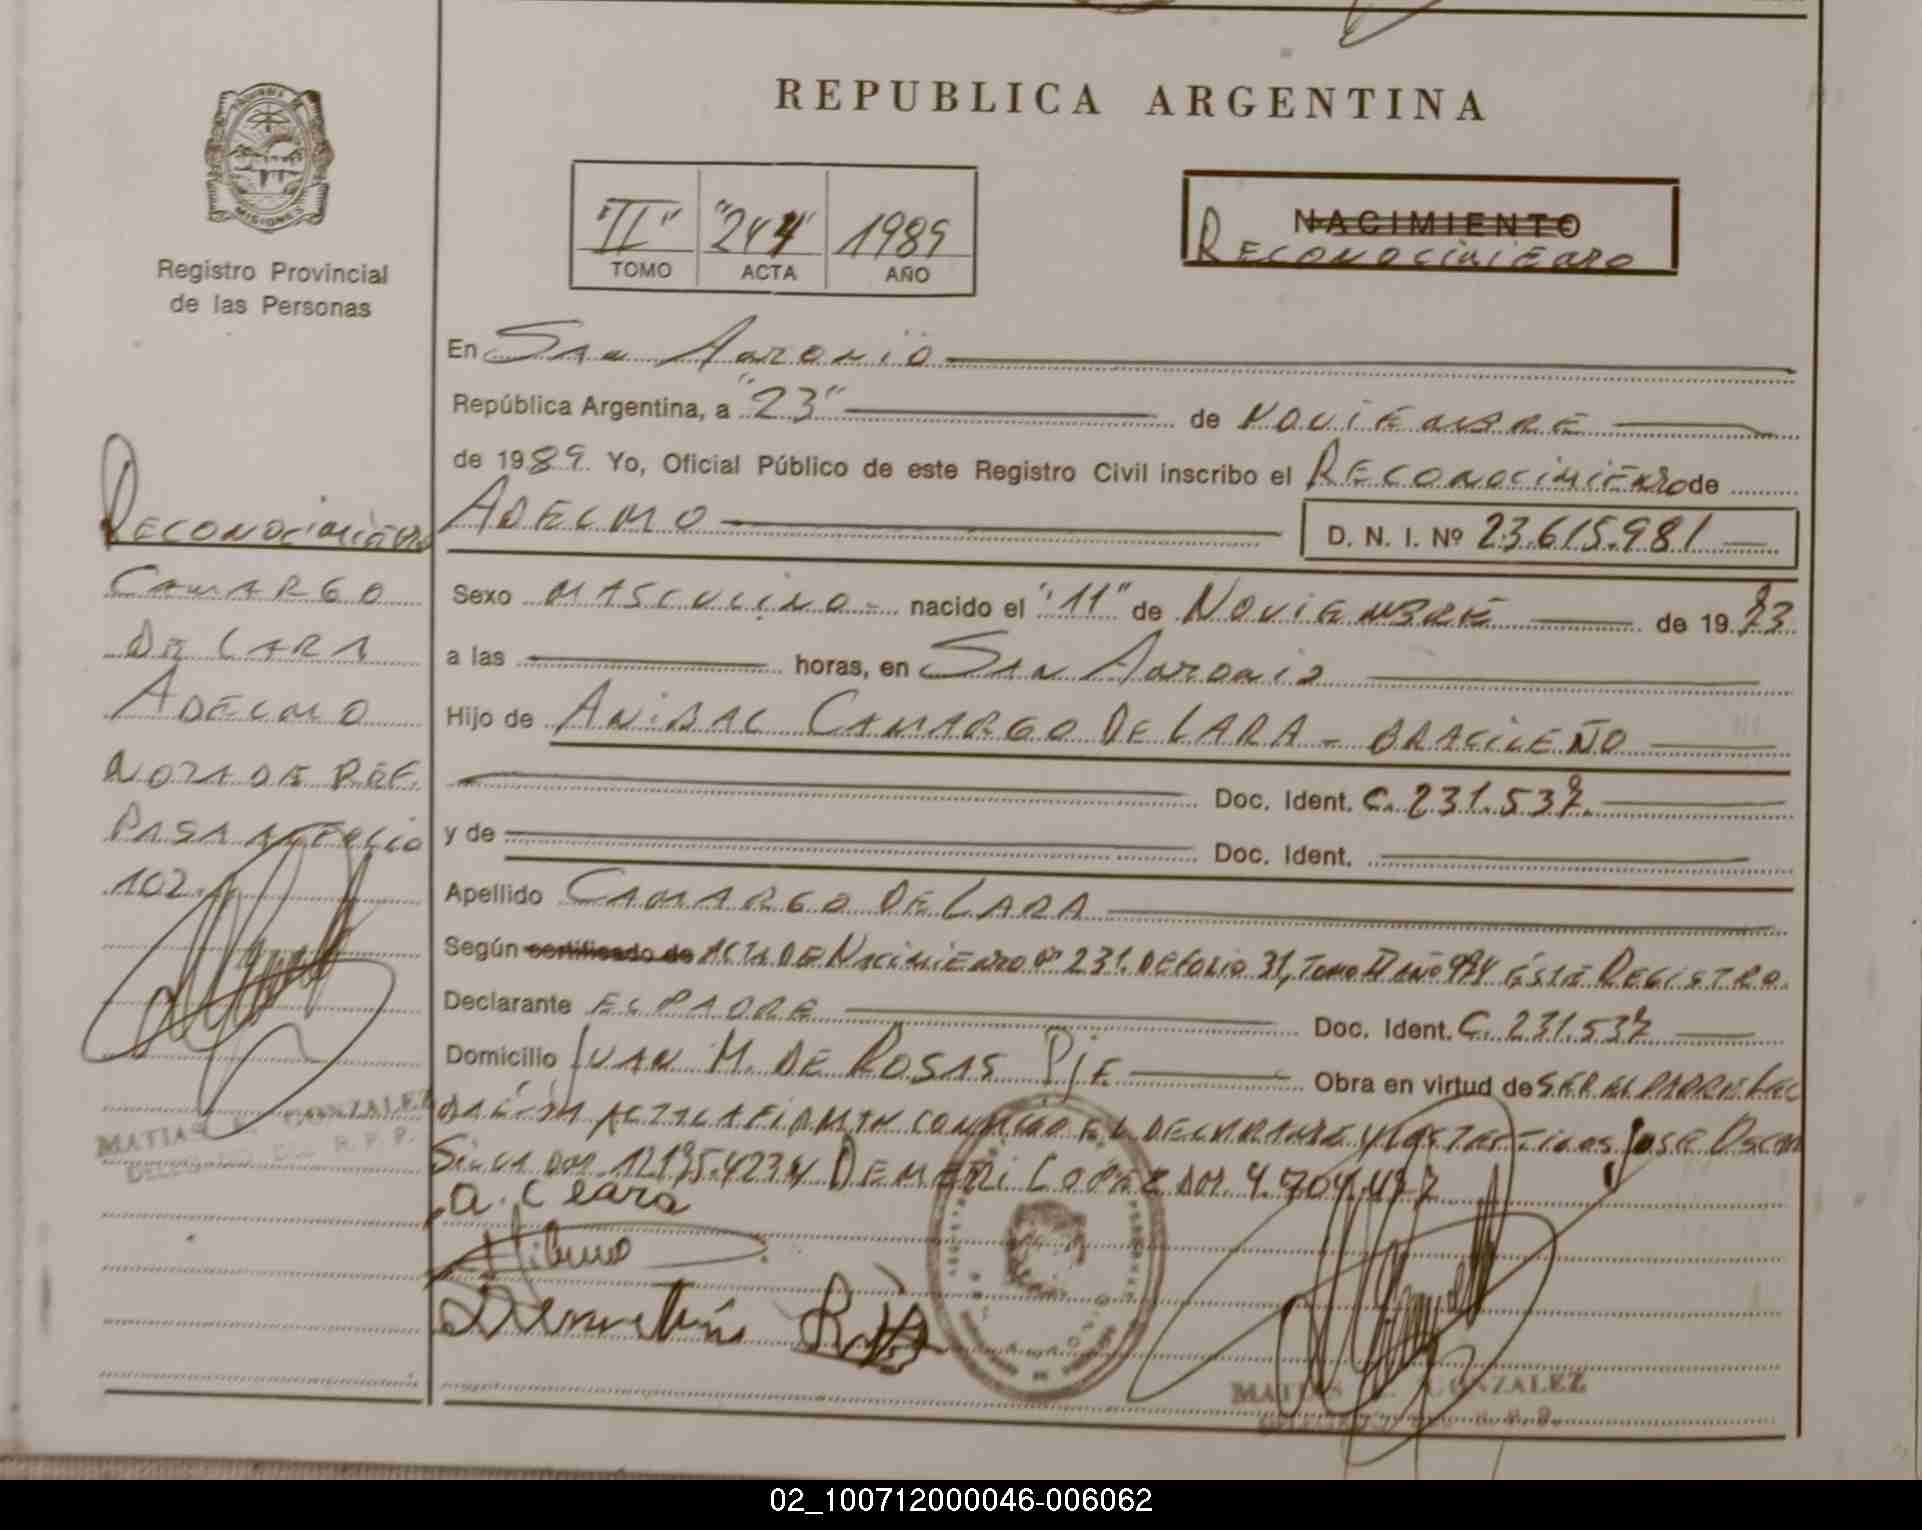 REPUBLICA ARGENTINA
MISIONES
Registro Provincial
de las Personas
"II" "244" 1989
TOMO ACTA AÑO
NACIMIENTO
RECONOCIMIENTO
En San Antonio
República Argentina, a "23" de NOVIEMBRE
de 1989. Yo, Oficial Público de este Registro Civil inscribo el RECONOCIMIENTO de
ADELMO D. N. I. Nº 23.615.981
Sexo MASCULINO nacido el "11" de NOVIEMBRE de 1973
a las horas, en San Antonio
Hijo de ANIBAL CAMARGO DE LARA - BRACILEÑO
Doc. Ident. C. 231.537.
y de Doc. Ident.
Apellido CAMARGO DE LARA
Según certificado de ACTA DE NACIMIENTO Nº 231. DE FOLIO 31, TOMO II AÑO 974 ÉSTE REGISTRO.
Declarante EL PADRE Doc. Ident. C. 231.537
Domicilio JUAN M. DE ROSAS Pje. Obra en virtud de SER EL PADRE. LEC
LA ACTA LA FIRMAN CONMIGO EL DECLARANTE Y LOS TESTIGOS JOSE OSCAR
SILVA DNI LOPEZ DNI.
a. c Leara
MATIAS GONZALEZ
RECONOCIMIENTO
CAMARGO
DE LARA
ADELMO
NOTA DE REF.
PASA AL FOLIO
102.
MATIAS GONZALEZ
R. P. P.
02_100712000046-006062